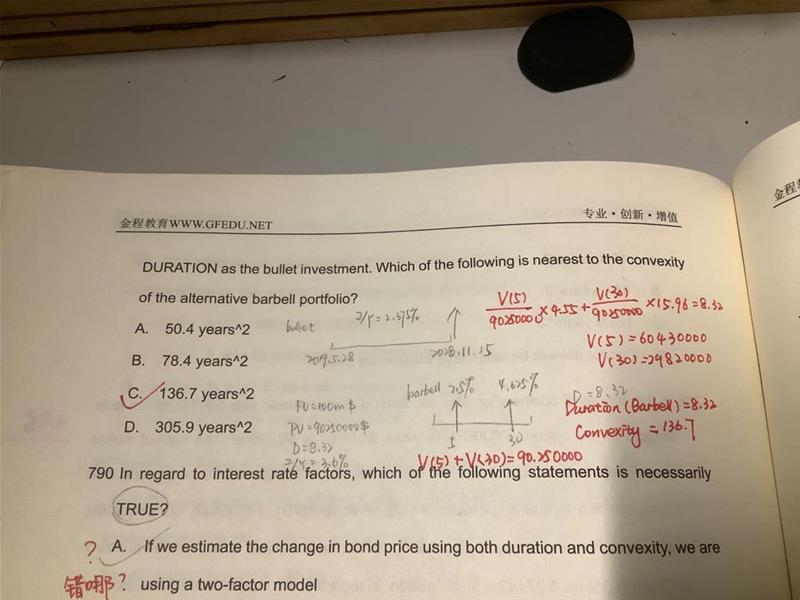 金程教育WWW.GFEDU.NET
专业·创新·增值
DURATION as the bullet investment. Which of the following is nearest to the convexity
of the alternative barbell portfolio?
A. 50.4 years^2
B. 78.4 years^2
C. 136.7 years^2
D. 305.9 years^2
bullet
I/Y=2.375%
2019.5.28
2028.11.15
FV=100m $
PV=90250000$
D=8.32
I/Y=3.6%
barbell 2.5%
4.625%
5
30
V(5)+V(30)=90.250000
V(5)/90250000 ×4.55+ V(30)/90250000 ×15.96=8.32
V(5)=60430000
V(30)=29820000
D=8.32
Duration (Barbell)=8.32
Convexity =136.7
790 In regard to interest rate factors, which of the following statements is necessarily
TRUE?
? A. If we estimate the change in bond price using both duration and convexity, we are
错哪? using a two-factor model
金程